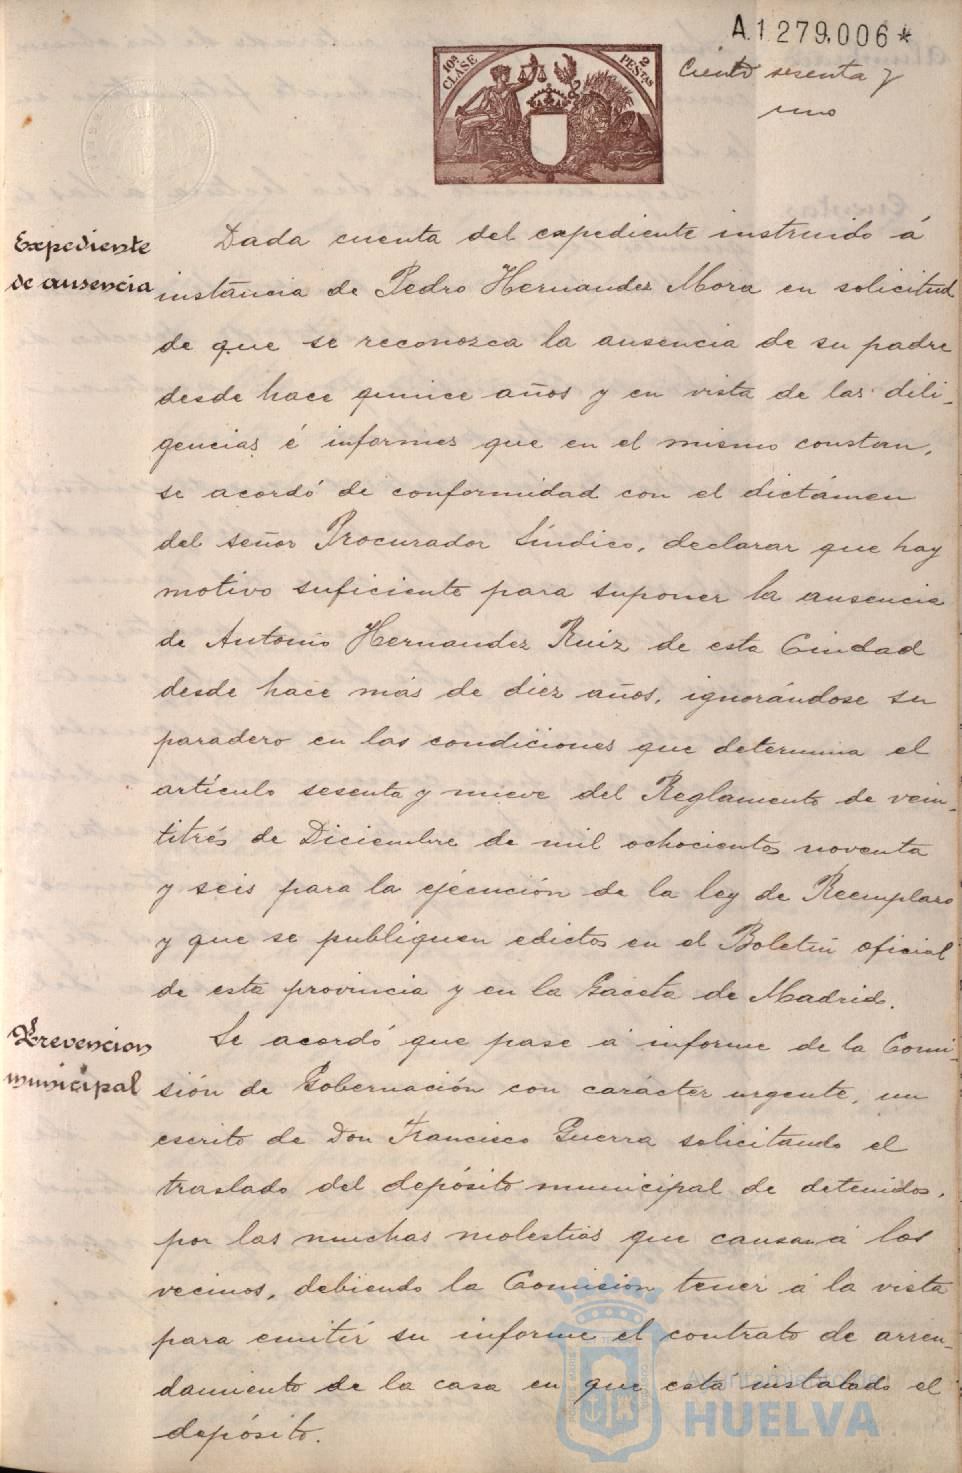 A.1.279.006*
10ª CLASE
2 PESTAS
Ciento sesenta y
uno
Expediente
de ausencia
Dada cuenta del expediente instruido á
instancia de Pedro Hernandez Mora en solicitud
de que se reconozca la ausencia de su padre
desde hace quince años y en vista de las dili-
gencias é informes que en el mismo constan,
se acordó de conformidad con el dictámen
del señor Procurador Síndico, declarar que hay
motivo suficiente para suponer la ausencia
de Antonio Hernandez Ruiz de esta Ciudad
desde hace más de diez años, ignorándose su
paradero en las condiciones que determina el
artículo sesenta y nueve del Reglamento de vein-
titrés de Diciembre de mil ochocientos noventa
y seis para la ejécución de la ley de Reemplazo
y que se publiquen edictos en el Boletín oficial
de esta provincia y en la Gaceta de Madrid.
Prevencion
municipal
Se acordó que pase á informe de la Comi-
sión de Gobernación con carácter urgente, un
escrito de Don Francisco Guerra solicitando el
traslado del depósito municipal de detenidos,
por las muchas molestias que causa á los
vecinos, debiendo la Comisión tener á la vista
para emitir su informe el contrato de arren-
damiento de la casa en que está instalado el
depósito.
Ayuntamiento de
HUELVA